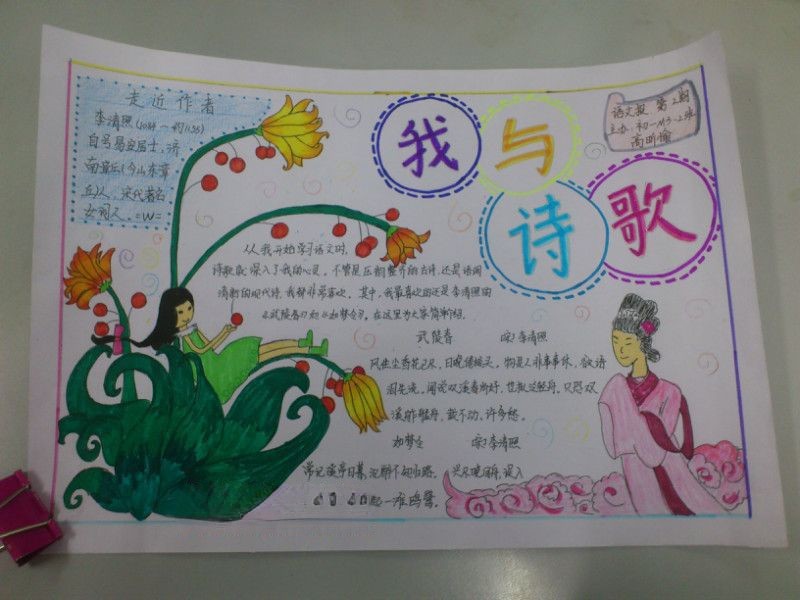 走近作者
李清照(1084-约1155)
自号易安居士,济
南章丘(今山东章
丘)人,宋代著名
女词人。=W=
我与
诗歌
语文报 第2期
主办:初一M3-2班
高昕愉
从我开始学习语文时,
诗歌就深入了我的心灵,不管是压韵整齐的古诗,还是语调
清新的现代诗,我都非常喜欢,其中,我最喜欢的还是李清照的
《武陵春》和《如梦令》,在这里为大家简单介绍。
武陵春 (宋)李清照
风住尘香花已尽,日晚倦梳头,物是人非事事休,欲语
泪先流,闻说双溪春尚好,也拟泛轻舟,只恐双
溪舴艋舟,载不动,许多愁。
如梦令 (宋)李清照
常记溪亭日暮,沉醉不知归路。兴尽晚回舟,误入
起一滩鸥鹭。